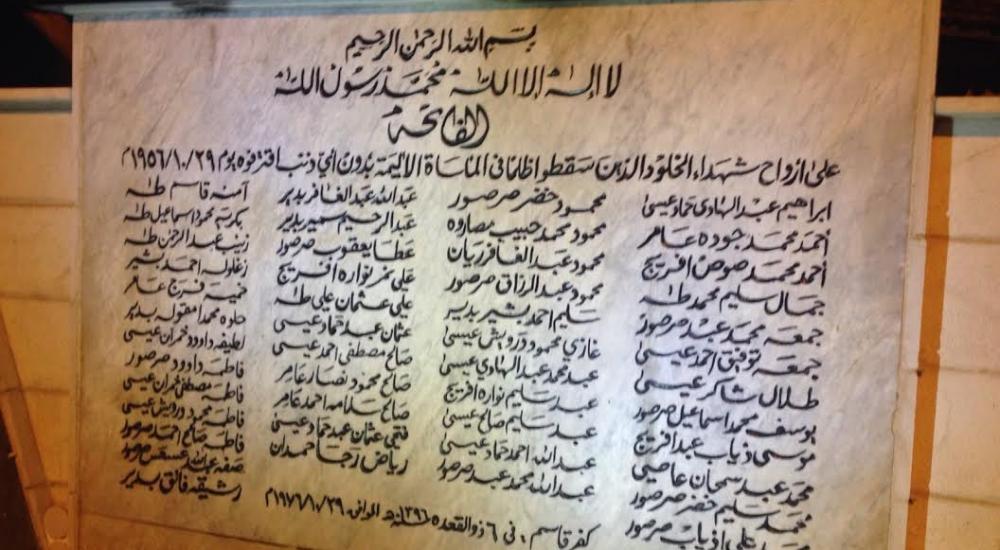 بسم الله الرحمن الرحيم
لا إله إلا الله محمد رسول الله
الفاتحة
على ارواح شهداء الخلود الذين سقطوا ظلما في المأساة الاليمة بدون اي ذنب اقترفوه يوم ٢٩/١٠/١٩٥٦م
ابراهيم عبد الهادي حماد عيسى
أحمد محمد جوده عامر
أحمد محمد صوص افريج
جمال سليم محمد طه
جمعه محمد عبد صرصور
جمعه توفيق احمد عيسى
طلال شاكر عيسى
يوسف محمد اسماعيل صرصور
موسى ذياب عبد افريج
محمد عبد سمحان عاصي
محمد سليم خضر صرصور
علي ذياب صرصور
محمود خضر صرصور
محمود محمد حبيب مصاروه
محمود عبد الغافر ريان
محمود عبد الرزاق صرصور
سليم احمد بشير بدير
غازي محمود درويش عيسى
عبد محمد عبد الهادي عيسى
عبد سليم نواره افريج
عبد سليم صالح عيسى
عبد الله احمد حماد عيسى
عبد الله محمد عبد صرصور
عبد الله عبد الغافر بدير
عبد الرحيم سمير بدير
عطا يعقوب صرصور
علي نمر نواره افريج
علي عثمان علي طه
عثمان عبد حماد عيسى
صالح مصطفى احمد عيسى
صالح محمود نصار عامر
صالح سلامه احمد عامر
فتحي عثمان عبد حماد عيسى
رياض رجا حمدان
آمنه قاسم طه
بكريه محمود اسماعيل طه
زينب عبد الرحمن طه
زغلوله احمد بشير
خميسه فرج عامر
حلوه محمد بدير
لطيفه داوود عيسى
فاطمه داوود صرصور
فاطمه مصطفى عيسى
فاطمه محمود درويش عيسى
فاطمه صالح احمد صرصور
صفيه عبد الله صرصور
رشيقه فائق بدير
كفر قاسم : في ٦ ذو القعده ١٣٩٦ الموافق ٢٩/١٠/١٩٧٦م